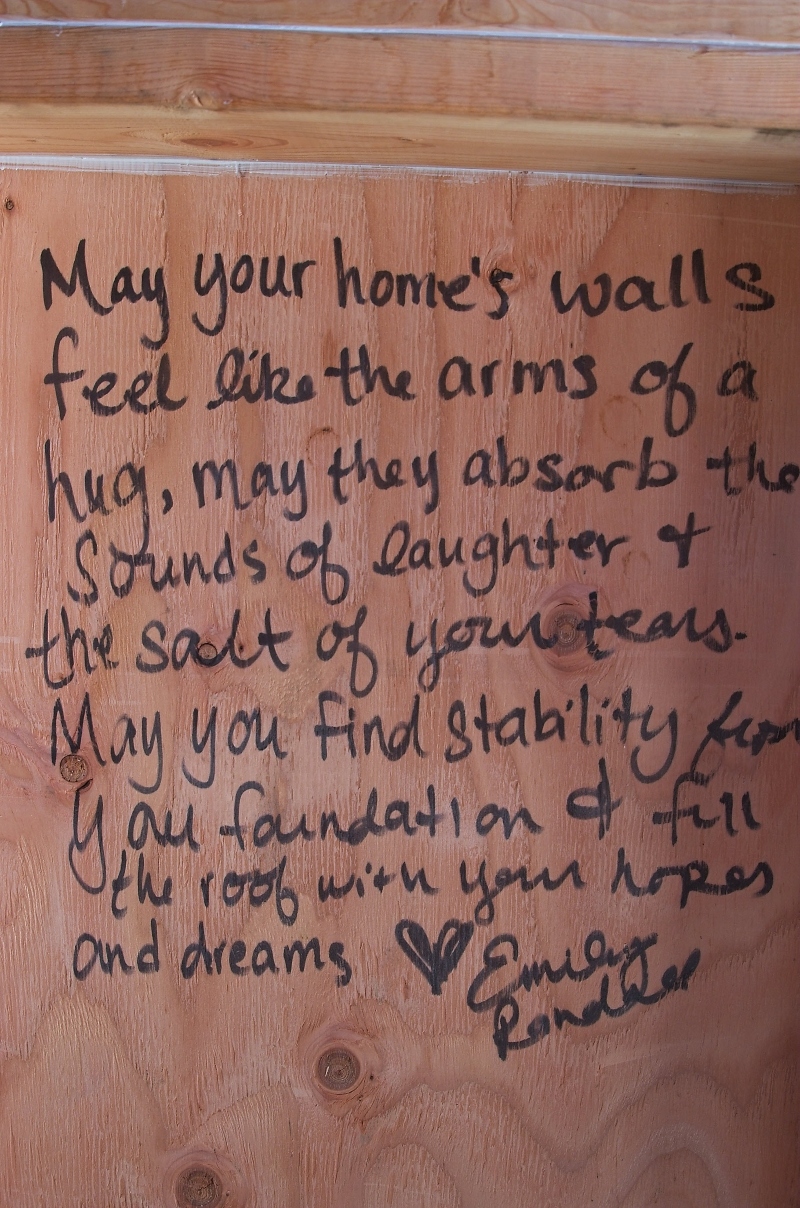 May your home's walls
feel like the arms of a
hug, may they absorb the
Sounds of laughter &
the salt of your tears.
May you find stability from
your foundation & fill
the roof with your hopes
and dreams ♥ Emily
Randall